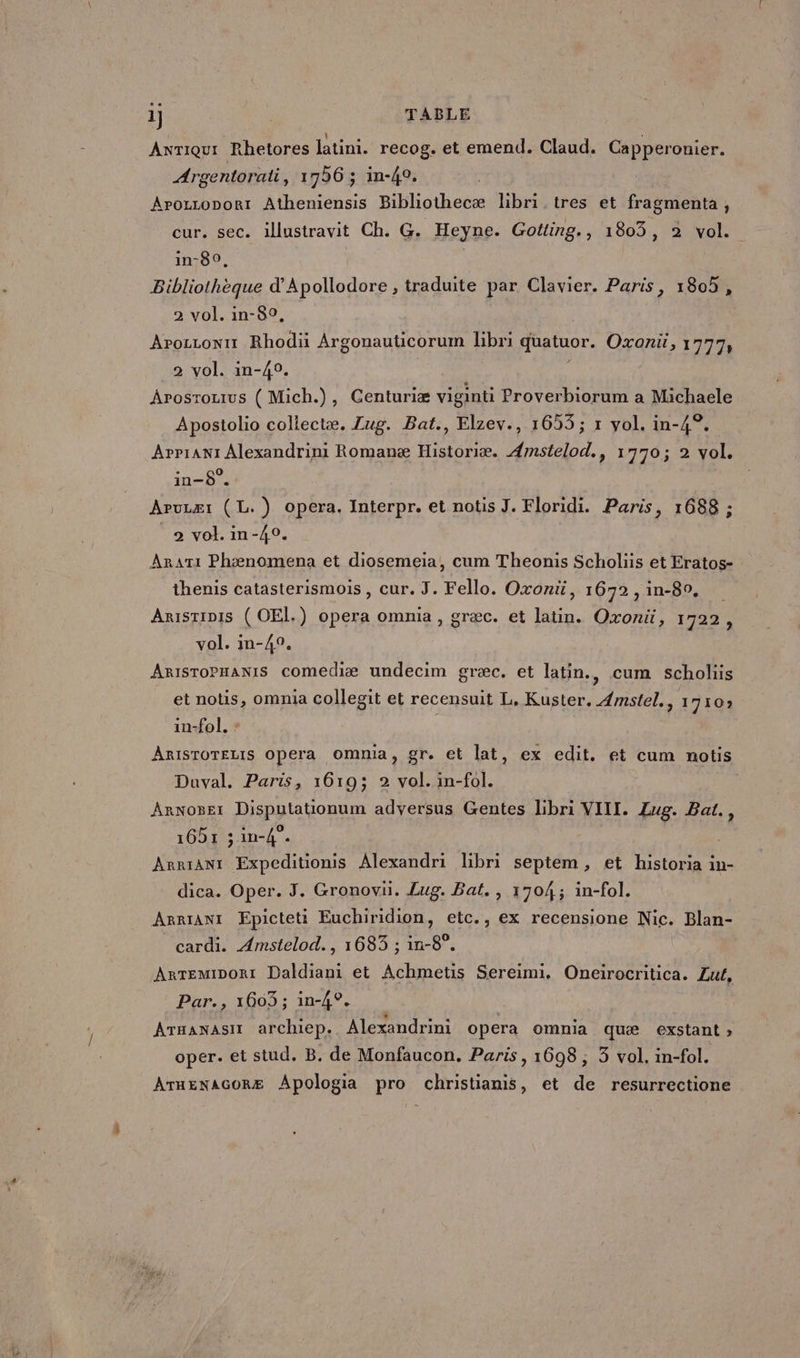 ij TABLE
ANTIQUI Rhetores latini. recog. et emend. Claud. Capperonier.
Argentorati, 1756; in-4º.
APOLLODORI Atheniensis Bibliothecæ libri tres et fragmenta,
cur. sec. illustravit Ch. G. Heyne. Gotting., 1803, 2 vol.
in-8º.
Bibliothèque d'Apollodore, traduite par Clavier. Paris, 1805,
2 vol. in-8º.
APOLLONII Rhodii Argonauticorum libri quatuor. Oxonii, 1777,
2 vol. in-4º.
APOSTOLIUS (Mich.), Centuriæ viginti Proverbiorum a Michaele
Apostolio collectæ. Lug. Bat., Elzev., 1653; 1 vol. in-4º.
APPIANI Alexandrini Romanæ Historiæ. Amstelod., 1770; 2 vol.
in-8º.
APULEI (L.) opera. Interpr. et notis J. Floridi. Paris, 1688;
2 vol. in-4º.
ARATI Phænomena et diosemeia, cum Theonis Scholiis et Eratos-
thenis catasterismois, cur. J. Fello. Oxonii, 1672, in-8º.
ARISTIDIS (OEl.) opera omnia, græc. et latin. Oxonii, 1722,
vol. in-4º.
ARISTOPHANIS comediæ undecim græc. et latin., cum scholiis
et notis, omnia collegit et recensuit L. Kuster. Amstel., 1710,
in-fol.
ARISTOTELIS opera omnia, gr. et lat, ex edit. et cum notis
Duval. Paris, 1619; 2 vol. in-fol.
ARNOBEI Disputationum adversus Gentes libri VIII. Lug. Bat.,
1651; in-4º.
ARRIANI Expeditionis Alexandri libri septem, et historia in-
dica. Oper. J. Gronovii. Lug. Bat., 1704; in-fol.
ARRIANI Epicteti Euchiridion, etc., ex recensione Nic. Blan-
cardi. Amstelod., 1683; in-8º.
ARTEMIDORI Daldiani et Achmetis Sereimi. Oneirocritica. Lut,
Par., 1603; in-4º.
ATHANASII archiep. Alexandrini opera omnia quæ exstant,
oper. et stud. B. de Monfaucon. Paris, 1698; 3 vol. in-fol.
ATHENAGORÆ Apologia pro christianis, et de resurrectione